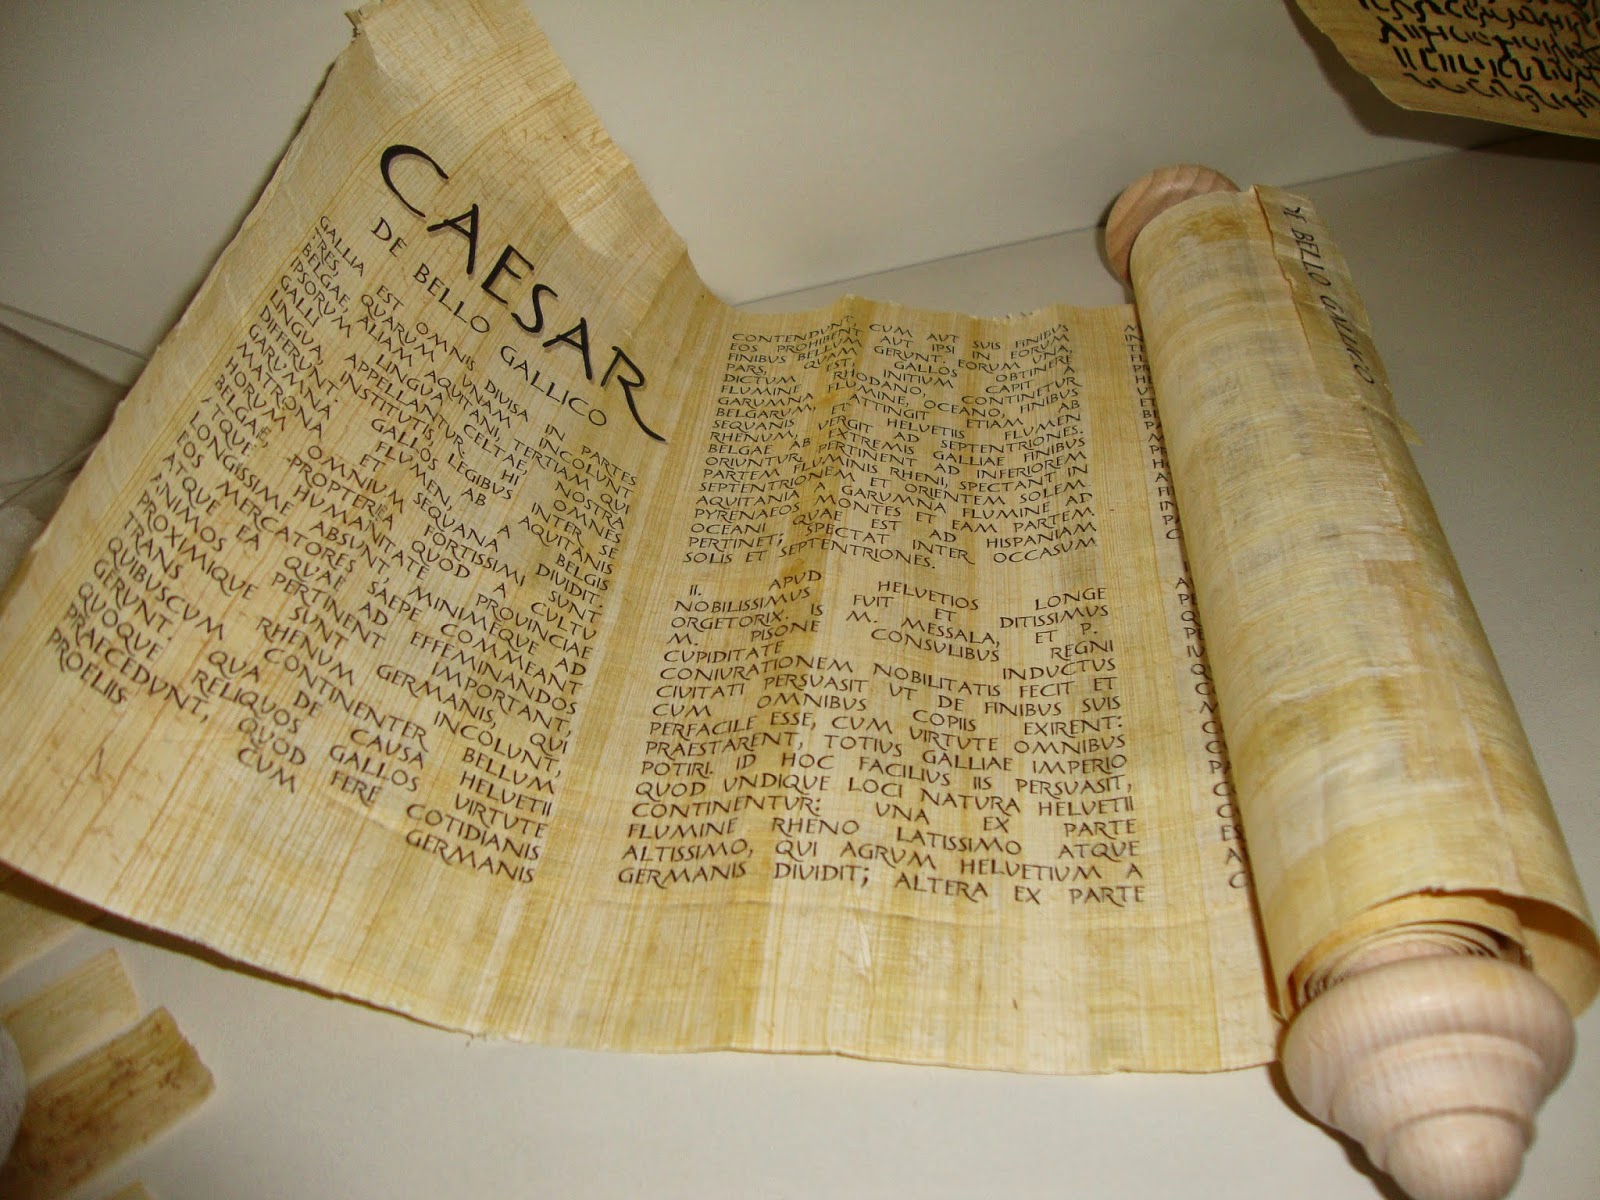 CAESAR
DE BELLO GALLICO
GALLIA EST OMNIS DIVISA IN PARTES
TRES, QUARUM UNAM INCOLUNT
BELGAE, ALIAM AQUITANI, TERTIAM QUI
IPSORUM LINGUA CELTAE, NOSTRA
GALLI APPELLANTUR. HI OMNES
LINGUA, INSTITUTIS, LEGIBUS INTER SE
DIFFERUNT. GALLOS AB AQUITANIS
GARUMNA FLUMEN, A BELGIS
MATRONA ET SEQUANA DIVIDIT.
HORUM OMNIUM FORTISSIMI SUNT
BELGAE, PROPTEREA QUOD A CULTU
ATQUE HUMANITATE PROVINCIAE
LONGISSIME ABSUNT, MINIMEQUE AD
EOS MERCATORES SAEPE COMMEANT
ATQUE EA QUAE AD EFFEMINANDOS
ANIMOS PERTINENT IMPORTANT,
PROXIMIQUE SUNT GERMANIS, QUI
TRANS RHENUM INCOLUNT,
QUIBUSCUM CONTINENTER BELLUM
GERUNT. QUA DE CAUSA HELVETII
QUOQUE RELIQUOS GALLOS VIRTUTE
PRAECEDUNT, QUOD FERE COTIDIANIS
PROELIIS CUM GERMANIS
CONTENDUNT, CUM AUT SUIS FINIBUS
EOS PROHIBENT AUT IPSI IN EORUM
FINIBUS BELLUM GERUNT. EORUM UNA
PARS, QUAM GALLOS OBTINERE
DICTUM EST, INITIUM CAPIT A
FLUMINE RHODANO, CONTINETUR
GARUMNA FLUMINE, OCEANO, FINIBUS
BELGARUM, ATTINGIT ETIAM AB
SEQUANIS ET HELVETIIS FLUMEN
RHENUM, VERGIT AD SEPTENTRIONES.
BELGAE AB EXTREMIS GALLIAE FINIBUS
ORIUNTUR, PERTINENT AD INFERIOREM
PARTEM FLUMINIS RHENI, SPECTANT IN
SEPTENTRIONEM ET ORIENTEM SOLEM
AQUITANIA A GARUMNA FLUMINE AD
PYRENAEOS MONTES ET EAM PARTEM
OCEANI QUAE EST AD HISPANIAM
PERTINET; SPECTAT INTER OCCASUM
SOLIS ET SEPTENTRIONES.
II. APUD HELVETIOS LONGE
NOBILISSIMUS FUIT ET DITISSIMUS
ORGETORIX. IS M. MESSALA, ET P.
M. PISONE CONSULIBUS REGNI
CUPIDITATE INDUCTUS
CONIURATIONEM NOBILITATIS FECIT ET
CIVITATI PERSUASIT UT DE FINIBUS SUIS
CUM OMNIBUS COPIIS EXIRENT:
PERFACILE ESSE, CUM VIRTUTE OMNIBUS
PRAESTARENT, TOTIUS GALLIAE IMPERIO
POTIRI. ID HOC FACILIUS IIS PERSUASIT,
QUOD UNDIQUE LOCI NATURA HELVETII
CONTINENTUR: UNA EX PARTE
FLUMINE RHENO LATISSIMO ATQUE
ALTISSIMO, QUI AGRUM HELVETIUM A
GERMANIS DIVIDIT; ALTERA EX PARTE
BELLO GALLICO